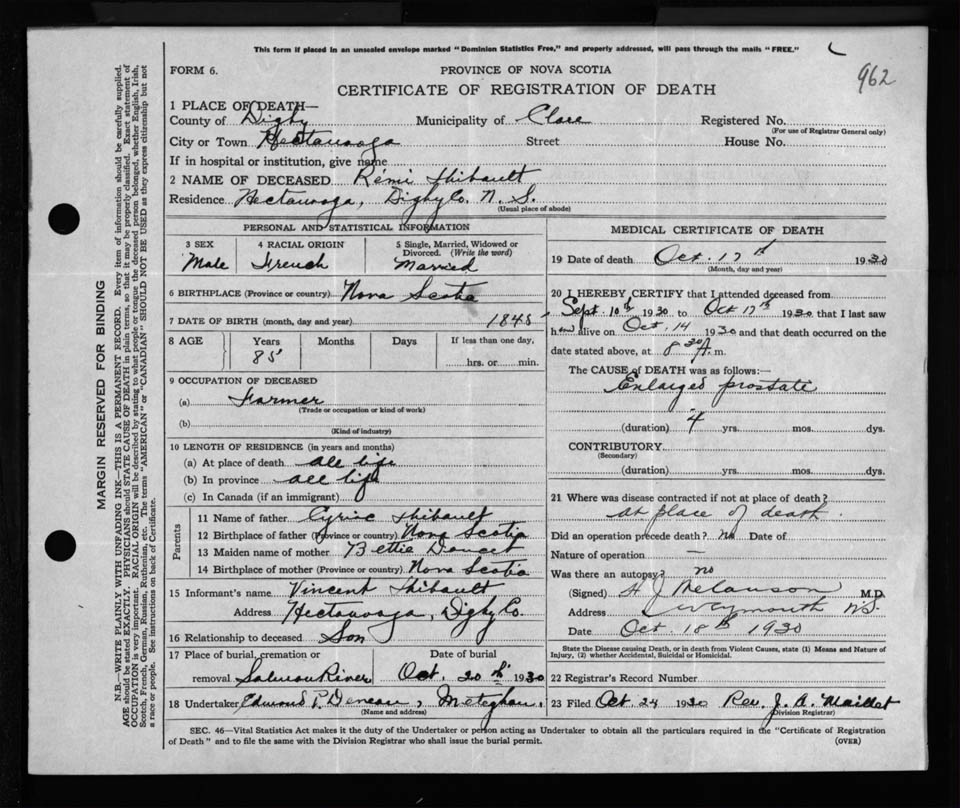 This form if placed in an unsealed envelope marked "Dominion Statistics Free," and properly addressed, will pass through the mails "FREE."
962
FORM 6.
PROVINCE OF NOVA SCOTIA
CERTIFICATE OF REGISTRATION OF DEATH
1 PLACE OF DEATH—
County of Digby Municipality of Clare Registered No.
(For use of Registrar General only)
City or Town Hectanooga Street House No.
If in hospital or institution, give name
2 NAME OF DECEASED Rémi Thibault
Residence Hectanooga, Digby Co. N. S.
(Usual place of abode)
PERSONAL AND STATISTICAL INFORMATION
3 SEX 4 RACIAL ORIGIN 5 Single, Married, Widowed or Divorced. (Write the word)
Male French Married
6 BIRTHPLACE (Province or country) Nova Scotia
7 DATE OF BIRTH (month, day and year) 1845
8 AGE Years Months Days If less than one day,
85 hrs. or min.
9 OCCUPATION OF DECEASED
(a) Farmer
(Trade or occupation or kind of work)
(b)
(Kind of industry)
10 LENGTH OF RESIDENCE (in years and months)
(a) At place of death all life
(b) In province all life
(c) In Canada (if an immigrant)
Parents
11 Name of father Cyriac Thibault
12 Birthplace of father (Province or country) Nova Scotia
13 Maiden name of mother Bettie Doucet
14 Birthplace of mother (Province or country) Nova Scotia
15 Informant's name Vincent Thibault
Address Hectanooga, Digby Co.
16 Relationship to deceased Son
17 Place of burial, cremation or Date of burial
removal Salmon River Oct. 20th 1930
18 Undertaker Edmond P. Meteghan.
(Name and address)
MEDICAL CERTIFICATE OF DEATH
19 Date of death Oct. 17th 1930
(Month, day and year)
20 I HEREBY CERTIFY that I attended deceased from
Sept. 10th 1930 to Oct 17th 1930 that I last saw
him alive on Oct. 14 1930 and that death occurred on the
date stated above, at 8 30 A. m.
The CAUSE of DEATH was as follows:—
Enlarged prostate
(duration) 4 yrs. mos. dys.
CONTRIBUTORY
(Secondary)
(duration) yrs. mos. dys.
21 Where was disease contracted if not at place of death?
at place of death.
Did an operation precede death? no Date of
Nature of operation —
Was there an autopsy? no
(Signed) H J Melanson M.D.
Address Weymouth NS.
Date Oct. 18th 1930
State the Disease causing Death, or in death from Violent Causes, state (1) Means and Nature of
Injury, (2) whether Accidental, Suicidal or Homicidal.
22 Registrar's Record Number
23 Filed Oct 24 1930 Rev. J. A. Maillet
Division Registrar)
SEC. 46—Vital Statistics Act makes it the duty of the Undertaker or person acting as Undertaker to obtain all the particulars required in the "Certificate of Registration
of Death" and to file the same with the Division Registrar who shall issue the burial permit.
(OVER)
MARGIN RESERVED FOR BINDING
N.B.—WRITE PLAINLY WITH UNFADING INK—THIS IS A PERMANENT RECORD. Every item of information should be carefully supplied.
AGE should be stated EXACTLY. PHYSICIANS should STATE CAUSE OF DEATH in plain terms, so that it may be properly classified. Exact statement of
OCCUPATION is very important. RACIAL ORIGIN will be described by stating to what people or tongue the deceased person belonged, whether English, Irish,
Scotch, French, German, Russian, Ruthenian, etc. The terms "AMERICAN" or "CANADIAN" SHOULD NOT BE USED as they express citizenship but not
a race or people. See instructions on back of Certificate.